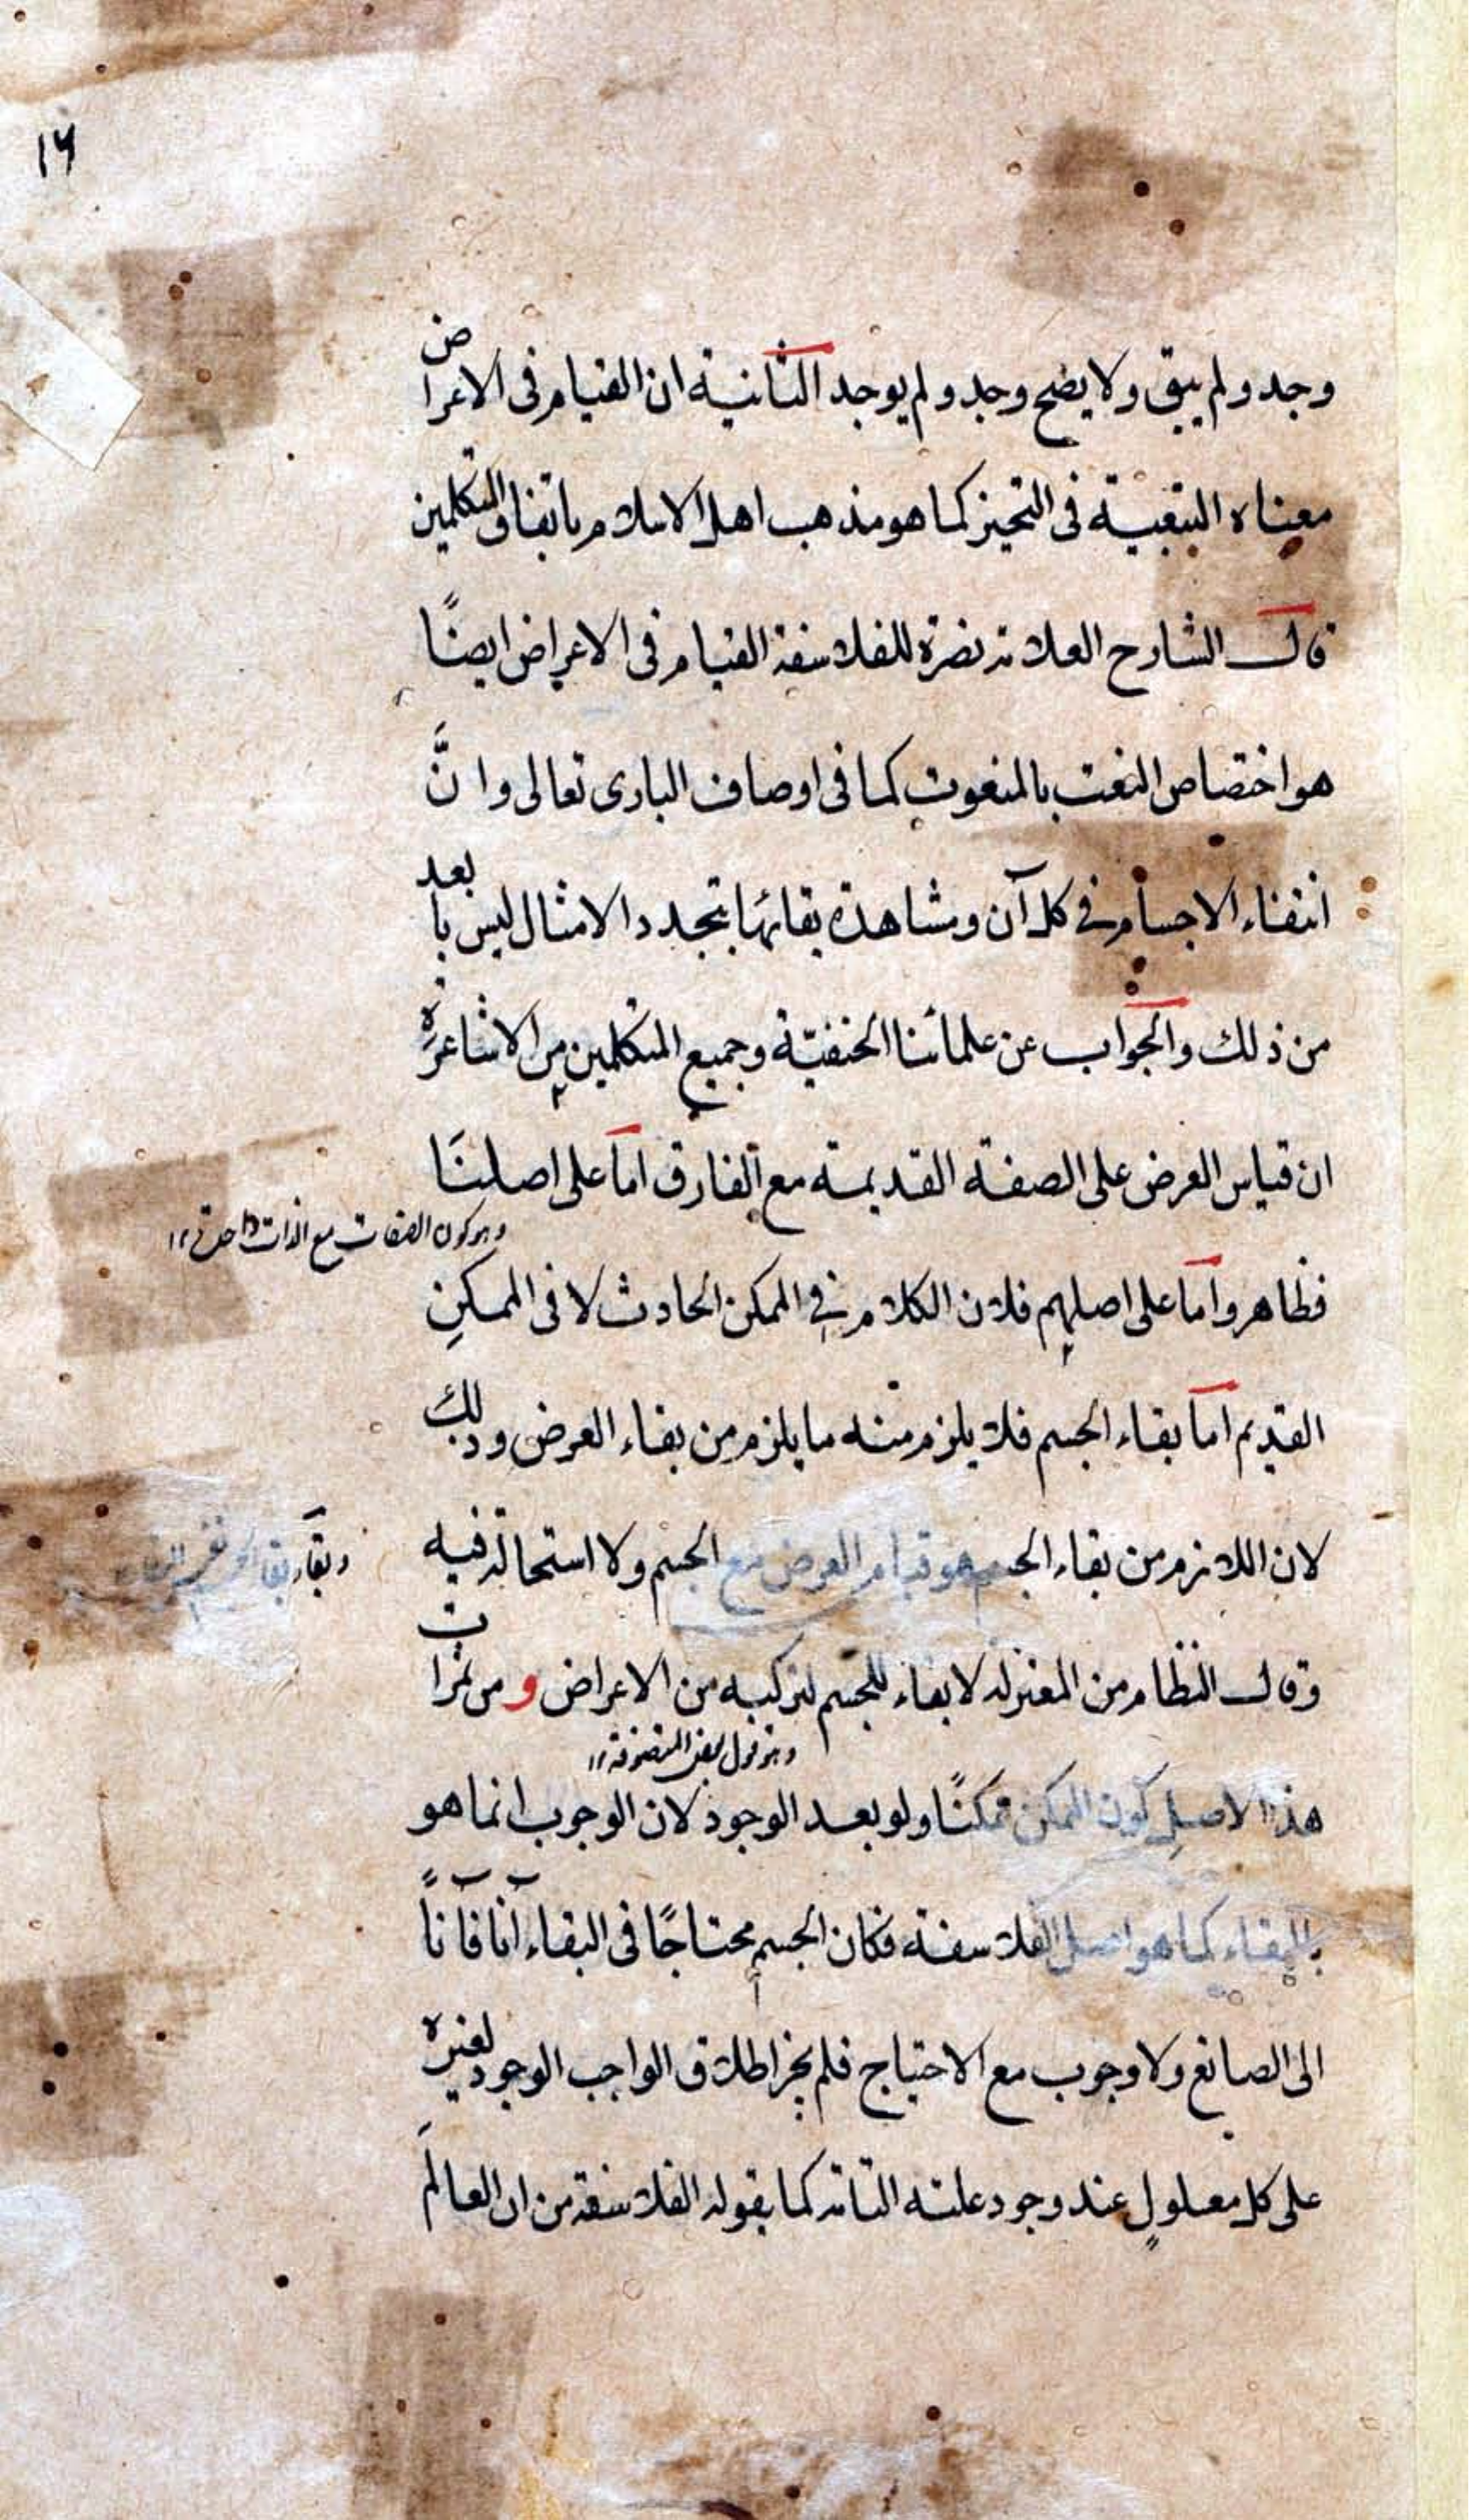 ١٦
وجد ولم يبق ولا يصح وجد ولم يوجد الثانية ان القيام في الاعراض
معناه التبعية في التحيز كما هو مذهب اهل الاسلام باتفاق المتكلمين
قال الشارح العلامة نصرة للفلاسفة القيام في الاعراض ايضًا
هو اختصاص النعت بالمنعوت كما في اوصاف الباري تعالى وانَّ
انتفاء الاجسام في كل آن ومشاهدة بقائها بتجدد الامثال ليس بابعد
من ذلك والجواب عن علمائنا الحنفيّة وجميع المتكلمين من الاشاعرة
ان قياس العرض على الصفة القديمة مع الفارق اما على اصلنا
وهو كون الصفات مع الذات واحدة ١٢
فظاهر واما على اصلهم فلان الكلام في الممكن الحادث لا في الممكنِ
القديم اما بقاء الجسم فلا يلزم منه ما يلزم من بقاء العرض وذلك
لان اللازم من بقاء الجسم هو قيام العرض مع الجسم ولا استحالة فيه
وبقاء بقاء
وقال النظام من المعتزلة لا بقاء للجسم لتركبه من الاعراض و من ثمرات
وهو قول بعض المتصوفة ١٢
هذا الاصلِ كون الممكن ممكنًا ولو بعد الوجود لان الوجوب انما هو
بالبقاء كما هو اصل الفلاسفة فكان الجسم محتاجًا في البقاء آنا فآناً
الى الصانع ولا وجوب مع الاحتياج فلم يجز اطلاق الواجب الوجود لغيره
على كل معلولٍ عند وجود علته التامة كما يقوله الفلاسفة من ان العالَم